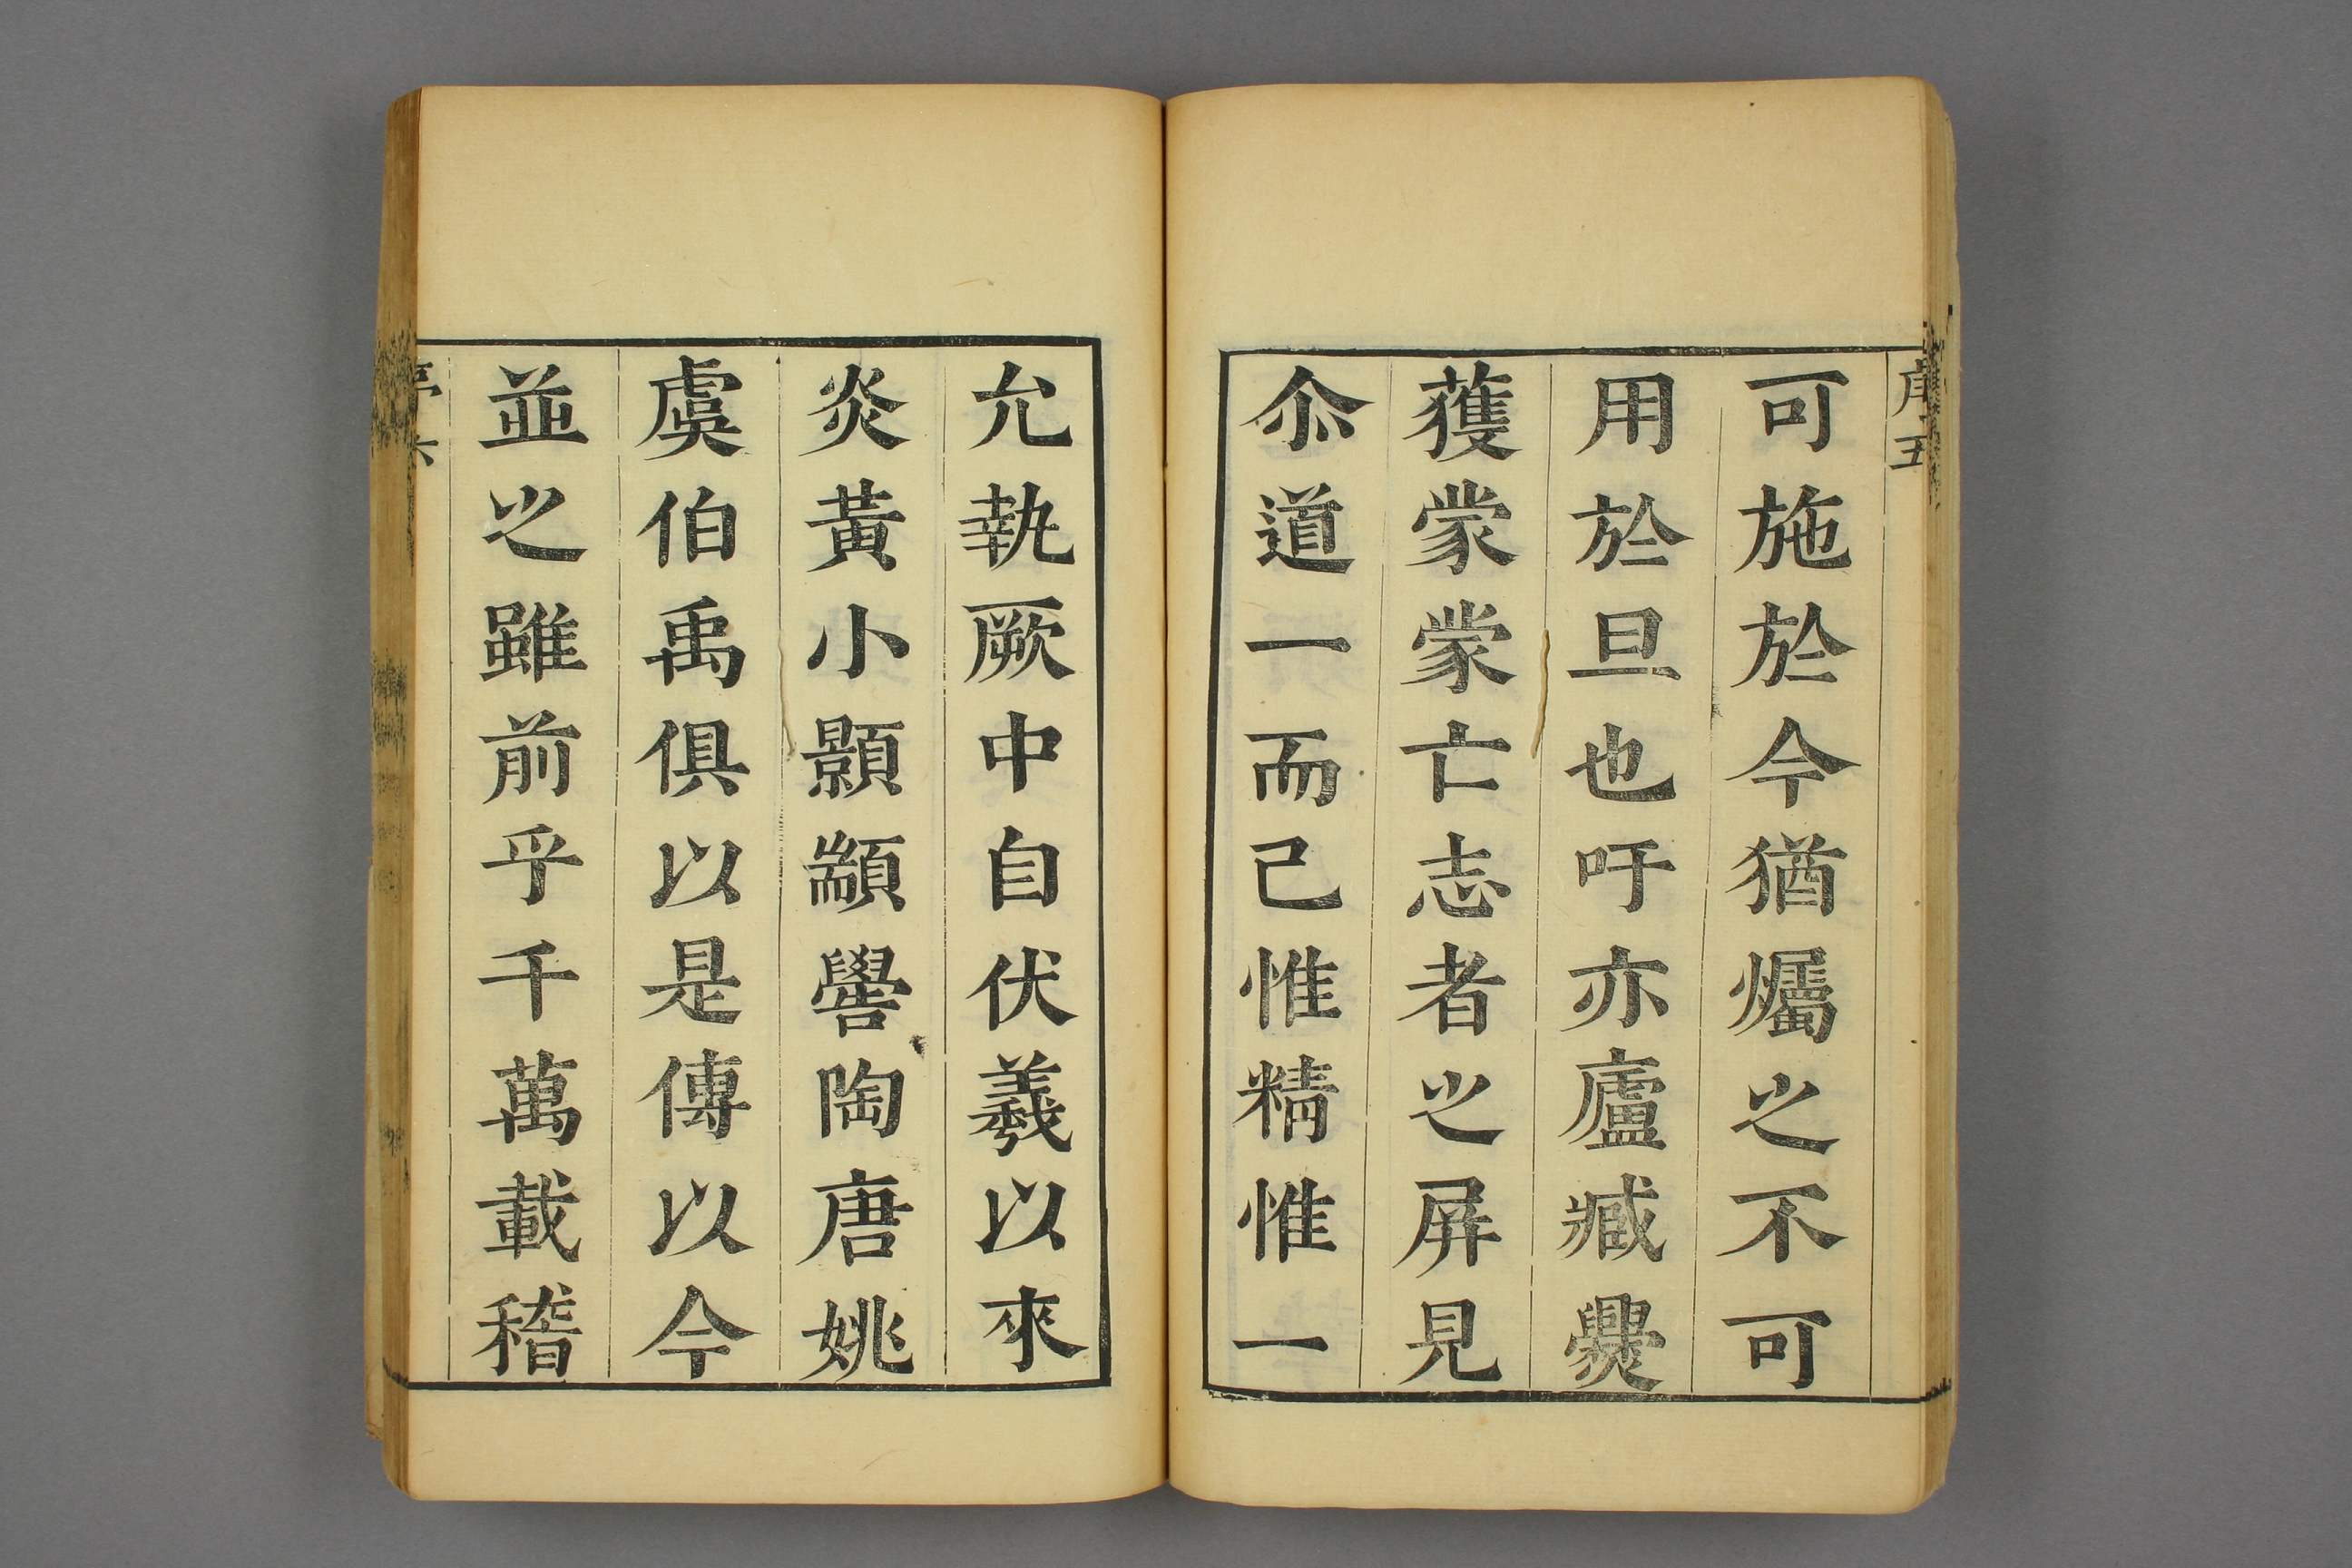 序五
可施於今猶爥之不可
用於旦也吁亦廬臧爨
蒦蒙蒙亡志者之屏見
尒道一而已惟精惟一
允執厥中自伏羲以來
炎黃小顥顓嚳陶唐姚
虞伯禹俱以是傳以今
並之雖前乎千萬載稽